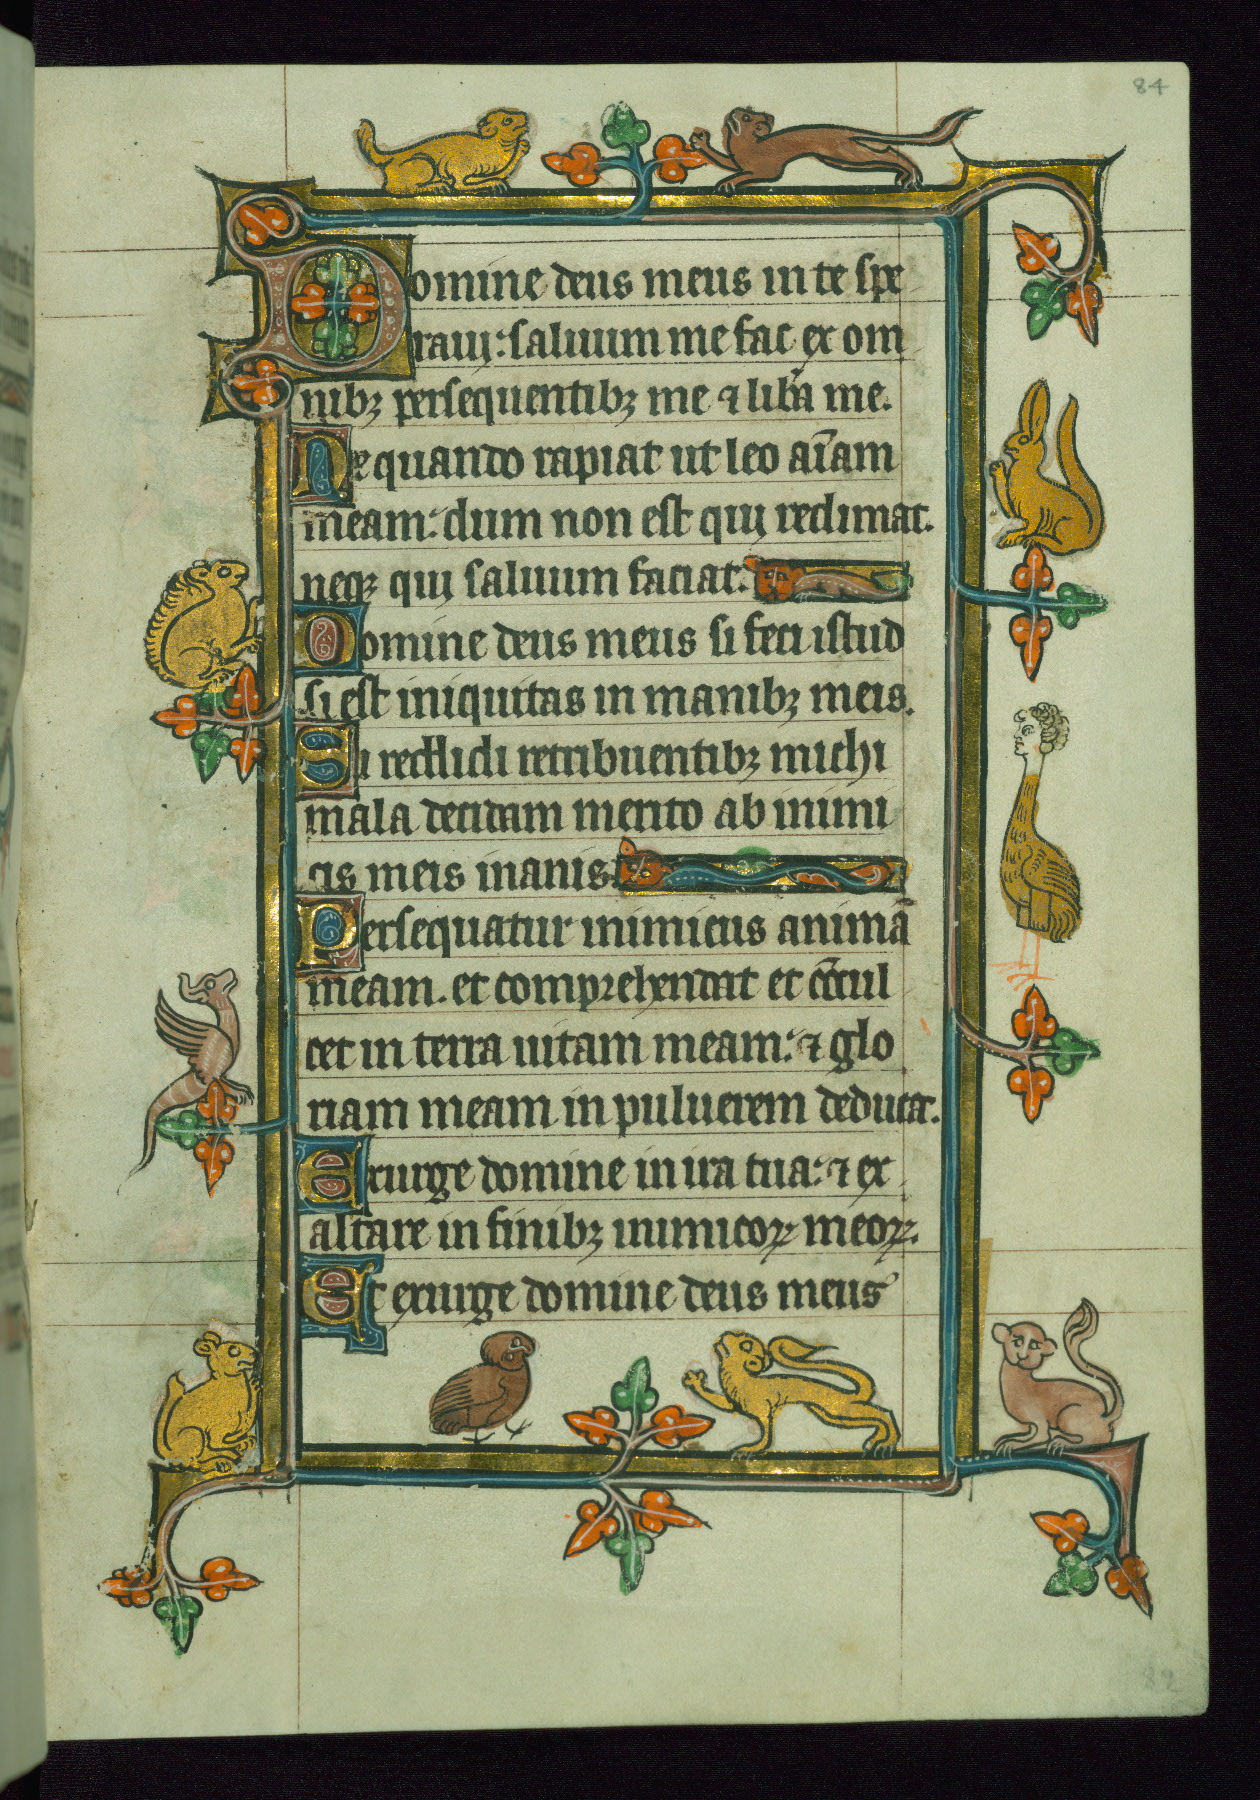 84
Domine deus meus in te spe
raui: saluum me fac ex om
nibꝫ persequentibꝫ me ⁊ lib̾a me.
Ne quando rapiat ut leo aīam
meam: dum non est qui redimat.
neqꝫ qui saluum faciat.
Domine deus meus si feci istud
si est iniquitas in manibꝫ meis.
Si reddidi retribuentibꝫ michi
mala decidam merito ab inimi
cis meis inanis.
Persequatur inimicus animā
meam. et comprehendat et cōcul
cet in terra uitam meam: ⁊ glo
riam meam in puluerem deducat.
Exurge domine in ira tua: ⁊ ex
altare in finibꝫ inimicoꝝ meoꝝ.
Et exurge domine deus meus
82